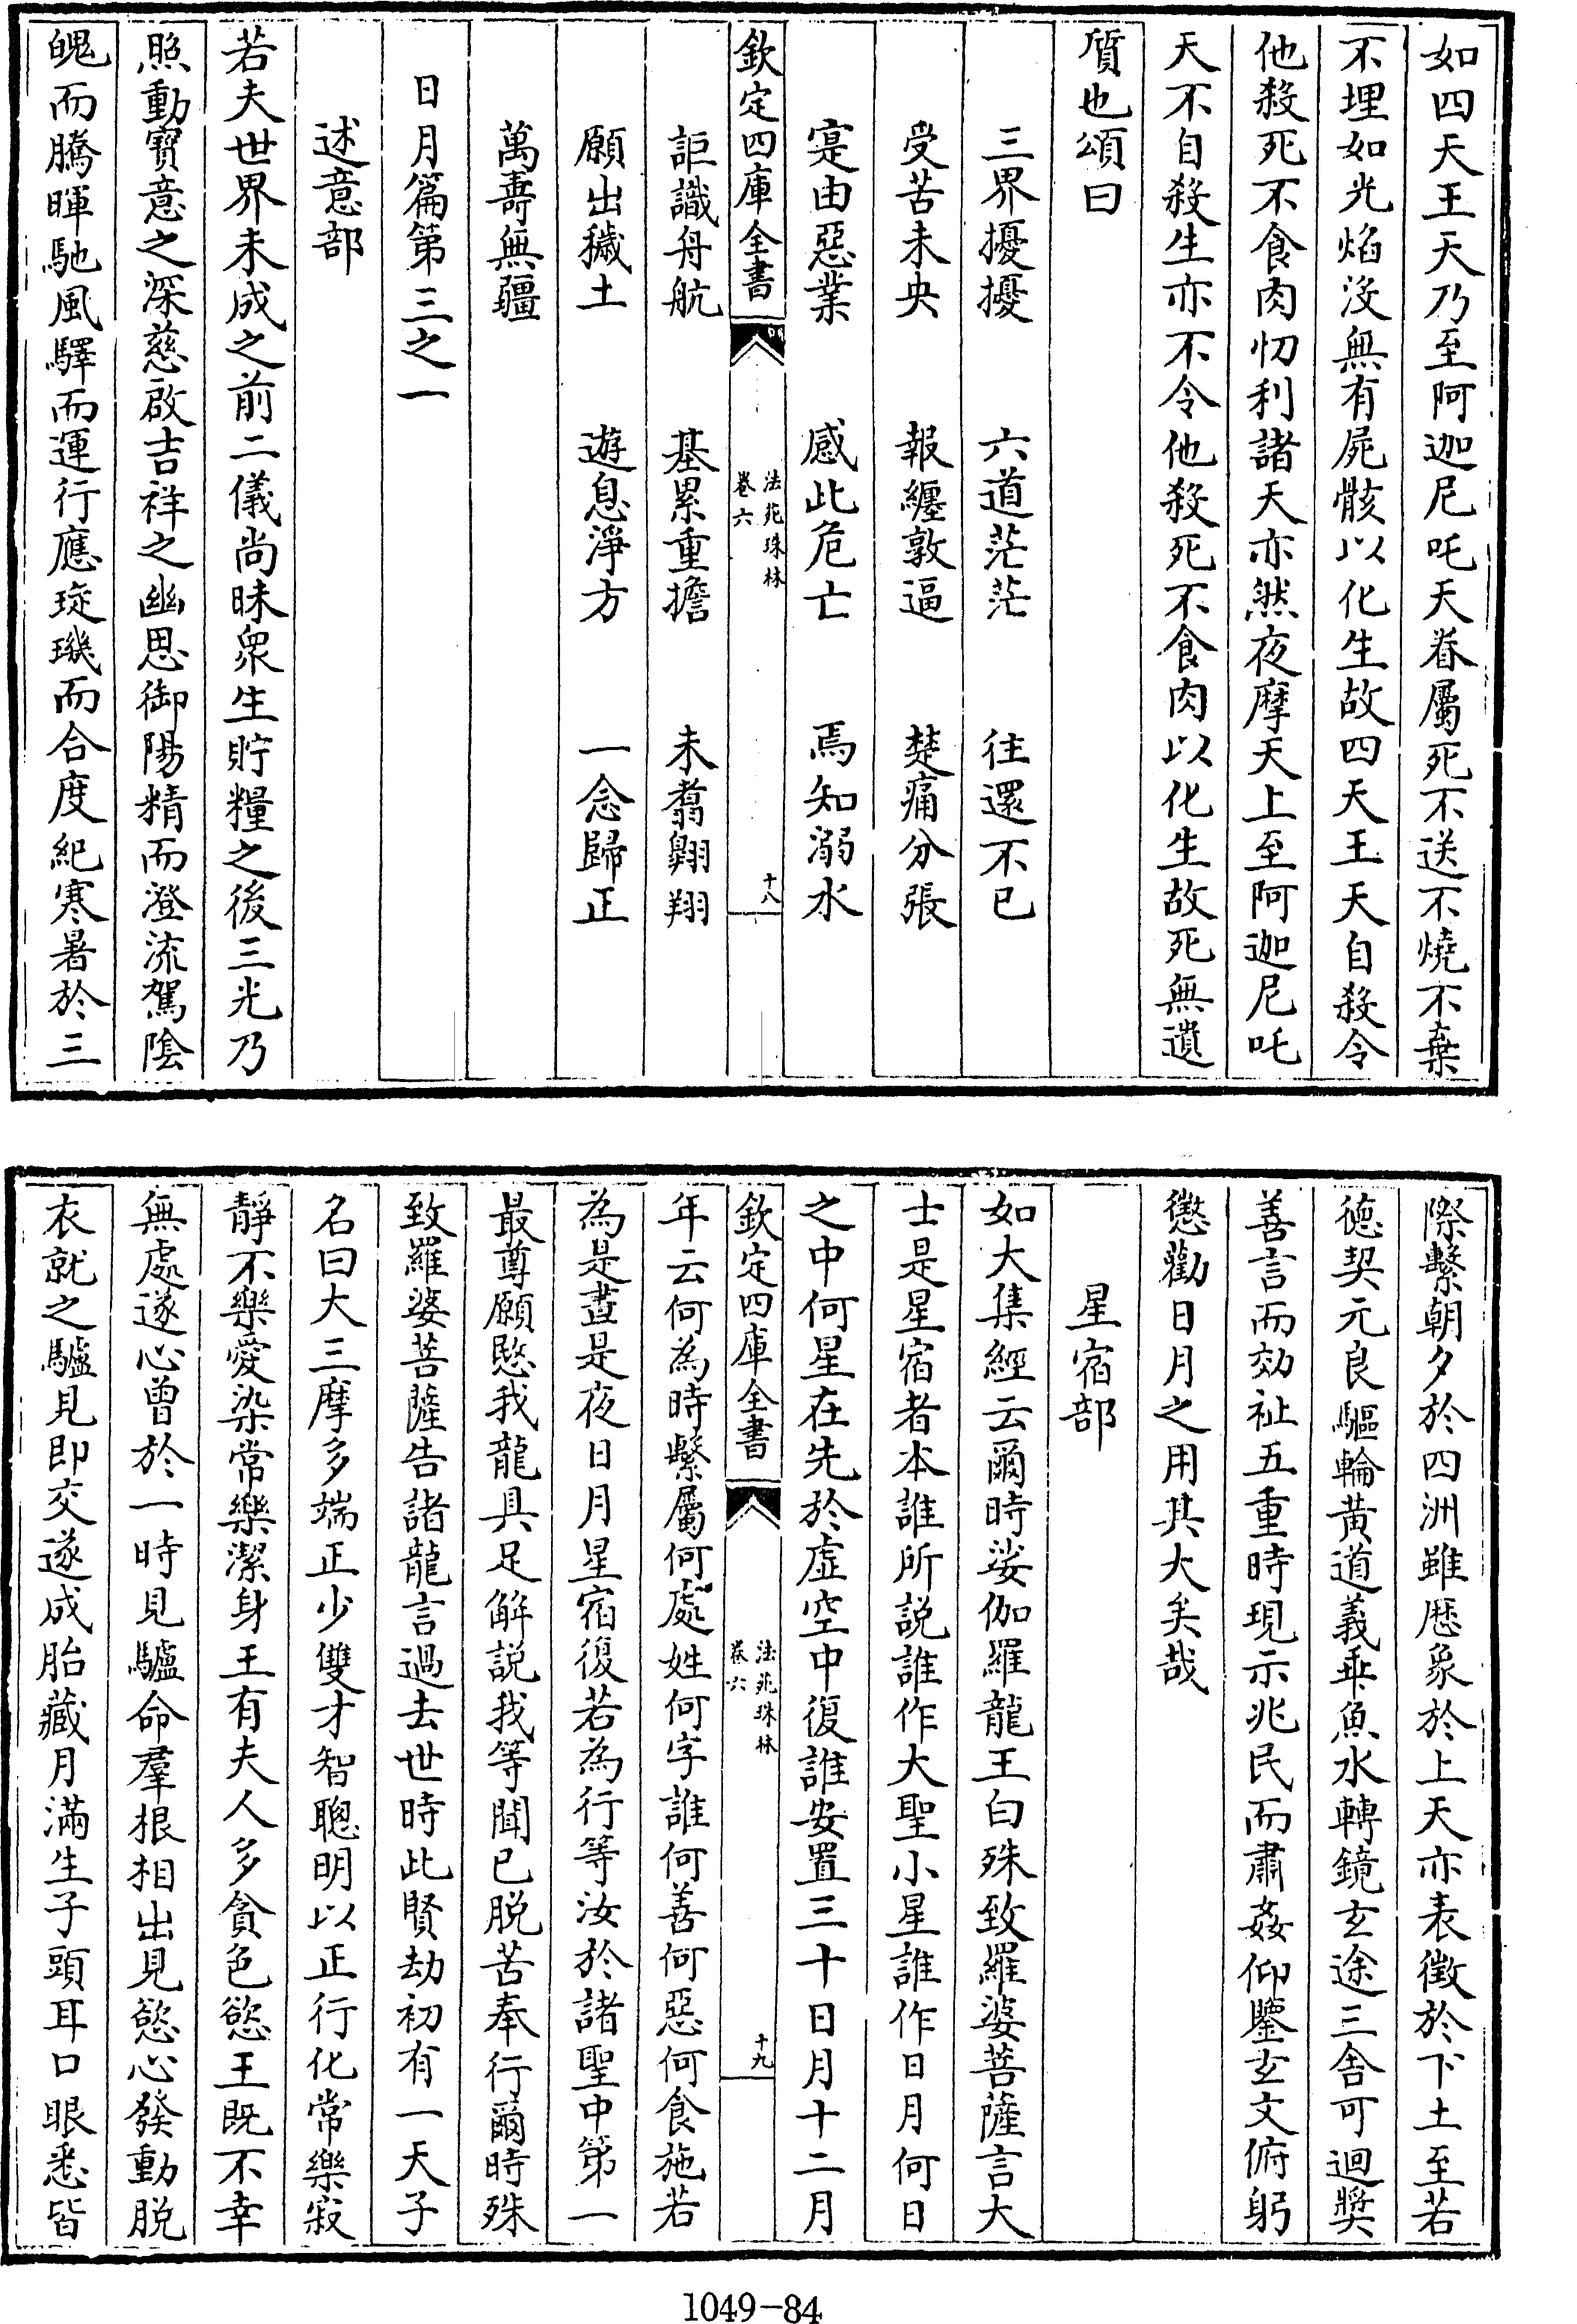 如四天王天乃至阿迦尼吒天眷屬死不送不燒不棄
不埋如光焰沒無有屍骸以化生故四天王天自殺令
他殺死不食肉忉利諸天亦然夜摩天上至阿迦尼吒
天不自殺生亦不令他殺死不食肉以化生故死無遺
質也頌曰
三界擾擾 六道茫茫 往還不已
受苦未央 報纏敦逼 楚痛分張
寔由惡業 感此危亡 焉知溺水
欽定四庫全書 法苑珠林 卷六 十八
詎識舟航 基累重擔 未翥翺翔
願出穢土 遊息淨方 一念歸正
萬壽無疆
日月篇第三之一
述意部
若夫世界未成之前二儀尚昧衆生貯糧之後三光乃
照動寶意之深慈啟吉祥之幽思御陽精而澄流駕陰
魄而騰暉馳風驛而運行應琁璣而合度紀寒暑於三
際繫朝夕於四洲雖厯象於上天亦表徵於下土至若
德契元良驅輪黄道義乖魚水轉鏡玄途三舍可迴奬
善言而効祉五重時現示兆民而肅姦仰鑒玄文俯躬
懲勸日月之用其大矣哉
星宿部
如大集經云爾時娑伽羅龍王白殊致羅婆菩薩言大
士是星宿者本誰所説誰作大聖小星誰作日月何日
之中何星在先於虛空中復誰安置三十日月十二月
欽定四庫全書 法苑珠林 卷六 十九
年云何為時繫屬何處姓何字誰何善何惡何食施若
為是晝是夜日月星宿復若為行等汝於諸聖中第一
最尊願愍我龍具足解説我等聞已脱苦奉行爾時殊
致羅婆菩薩告諸龍言過去世時此賢劫初有一天子
名曰大三摩多端正少雙才智聰明以正行化常樂寂
靜不樂愛染常樂潔身王有夫人多貪色慾王既不幸
無處遂心曾於一時見驢命羣根相出見慾心發動脱
衣就之驢見即交遂成胎藏月滿生子頭耳口眼悉皆
1049-84